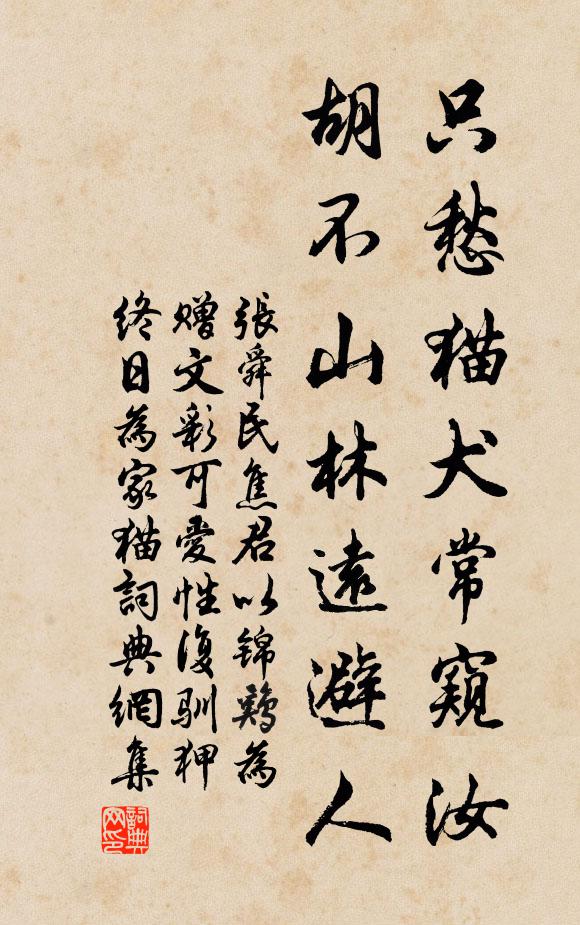 只愁猫犬常窺汝
胡不山林遠避人
張舜民焦君以錦鷄為
贈文彩可愛性復馴狎
終日為家猫詞典網集
詞典
网印